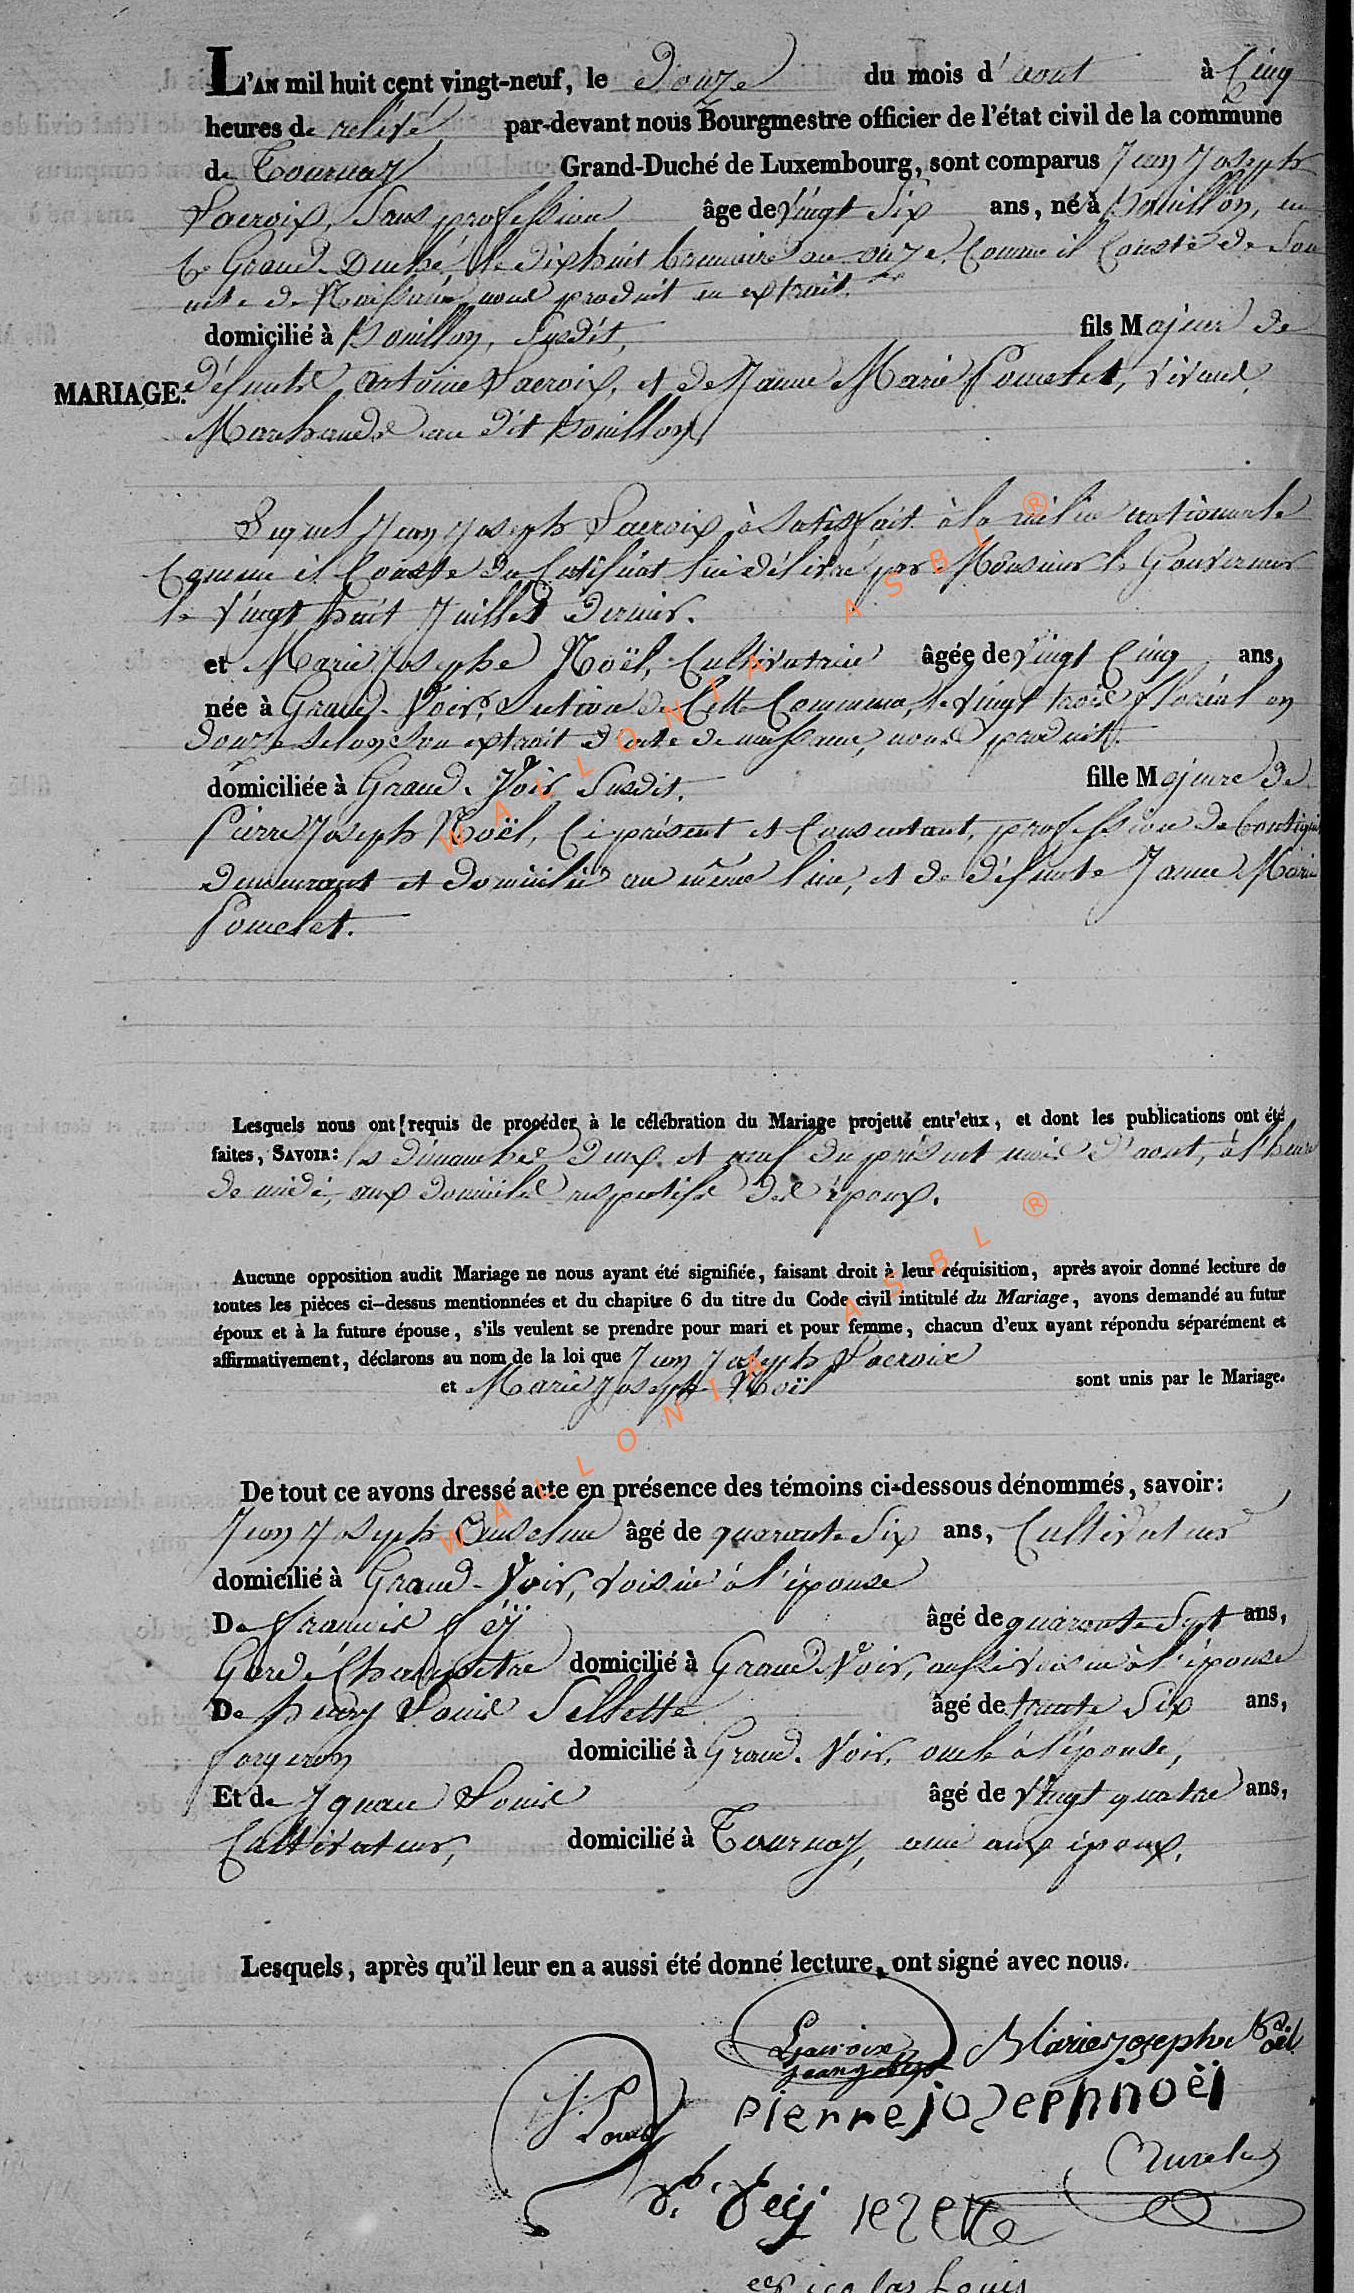 L'AN mil huit cent vingt-neuf, le Douze du mois d'aout à Cinq
heures de relévé par-devant nous Bourgmestre officier de l'état civil de la commune
de Tournay Grand-Duché de Luxembourg, sont comparus Jean Joseph
Lacroix, Sans profession âge de vingt Six ans, né à Bouillon, en
Ce Grand-Duché, le dixhuit brumaire an onze, Comme il Conste de Son
acte de Naissance nous produit en extrait.
domicilié à Bouillon, Susdit, fils Majeur de
MARIAGE. défunt antoine Lacroix, et de Jeanne Marie Poncelet, vivant
Marchande au dit Bouillon,
Lequel Jean Joseph Lacroix à Satisfait à la milice nationale
Comme il Conste du Certificat lui délivré par Monsieur le Gouverneur
le vingt huit Juillet dernier.
et Marie Josephe Noël, Cultivatrice âgée de vingt Cinq ans,
née à Grand-Voir, Section de Cette Commune, le vingt trois floréal an
douze Selon Son extrait d'acte de naissance, nous produit.
domiciliée à Grand-Voir Susdit. fille Majeure de
Pierre Joseph Noël, Ci présent et Consentant, profession de
demeurant et domicilié au même lieu, et de défunte Jeanne Marie
Poncelet.
Lesquels nous ont requis de procéder à le célébration du Mariage projetté entr'eux, et dont les publications ont été
faites, SAVOIR: les dimanches deux et neuf du présent mois d'aout, à l'heure
de midi, aux domiciles respectifs des époux.
Aucune opposition audit Mariage ne nous ayant été signifiée, faisant droit à leur réquisition, après avoir donné lecture de
toutes les pièces ci-dessus mentionnées et du chapitre 6 du titre du Code civil intitulé du Mariage, avons demandé au futur
époux et à la future épouse, s'ils veulent se prendre pour mari et pour femme, chacun d'eux ayant répondu séparément et
affirmativement, déclarons au nom de la loi que Jean Joseph Lacroix
et Marie Joseph Noël sont unis par le Mariage.
De tout ce avons dressé acte en présence des témoins ci-dessous dénommés, savoir:
Jean Joseph Anselme âgé de quarante Six ans, Cultivateur
domicilié à Grand-Voir, voisin à l'épouse
De francois féÿ âgé de quarante Sept ans,
Garde Champêtre domicilié à Grand Voir, aussi voisin à l'épouse
De henry Louis Sellette âgé de trente Six ans,
forgeron domicilié à Grand-Voir, oncle à l'épouse,
Et de Ignace Louis âgé de Vingt quatre ans,
Cultivateur, domicilié à Tournay, ami aux époux.
Lesquels, après qu'il leur en a aussi été donné lecture, ont signé avec nous.
Lacroix Marie josephe Noël
jean joseph
pierre jozeph noël
J. Louis
féÿ
nicolas Louis
WALLONIA ASBL ®
WALLONIA ASBL ®